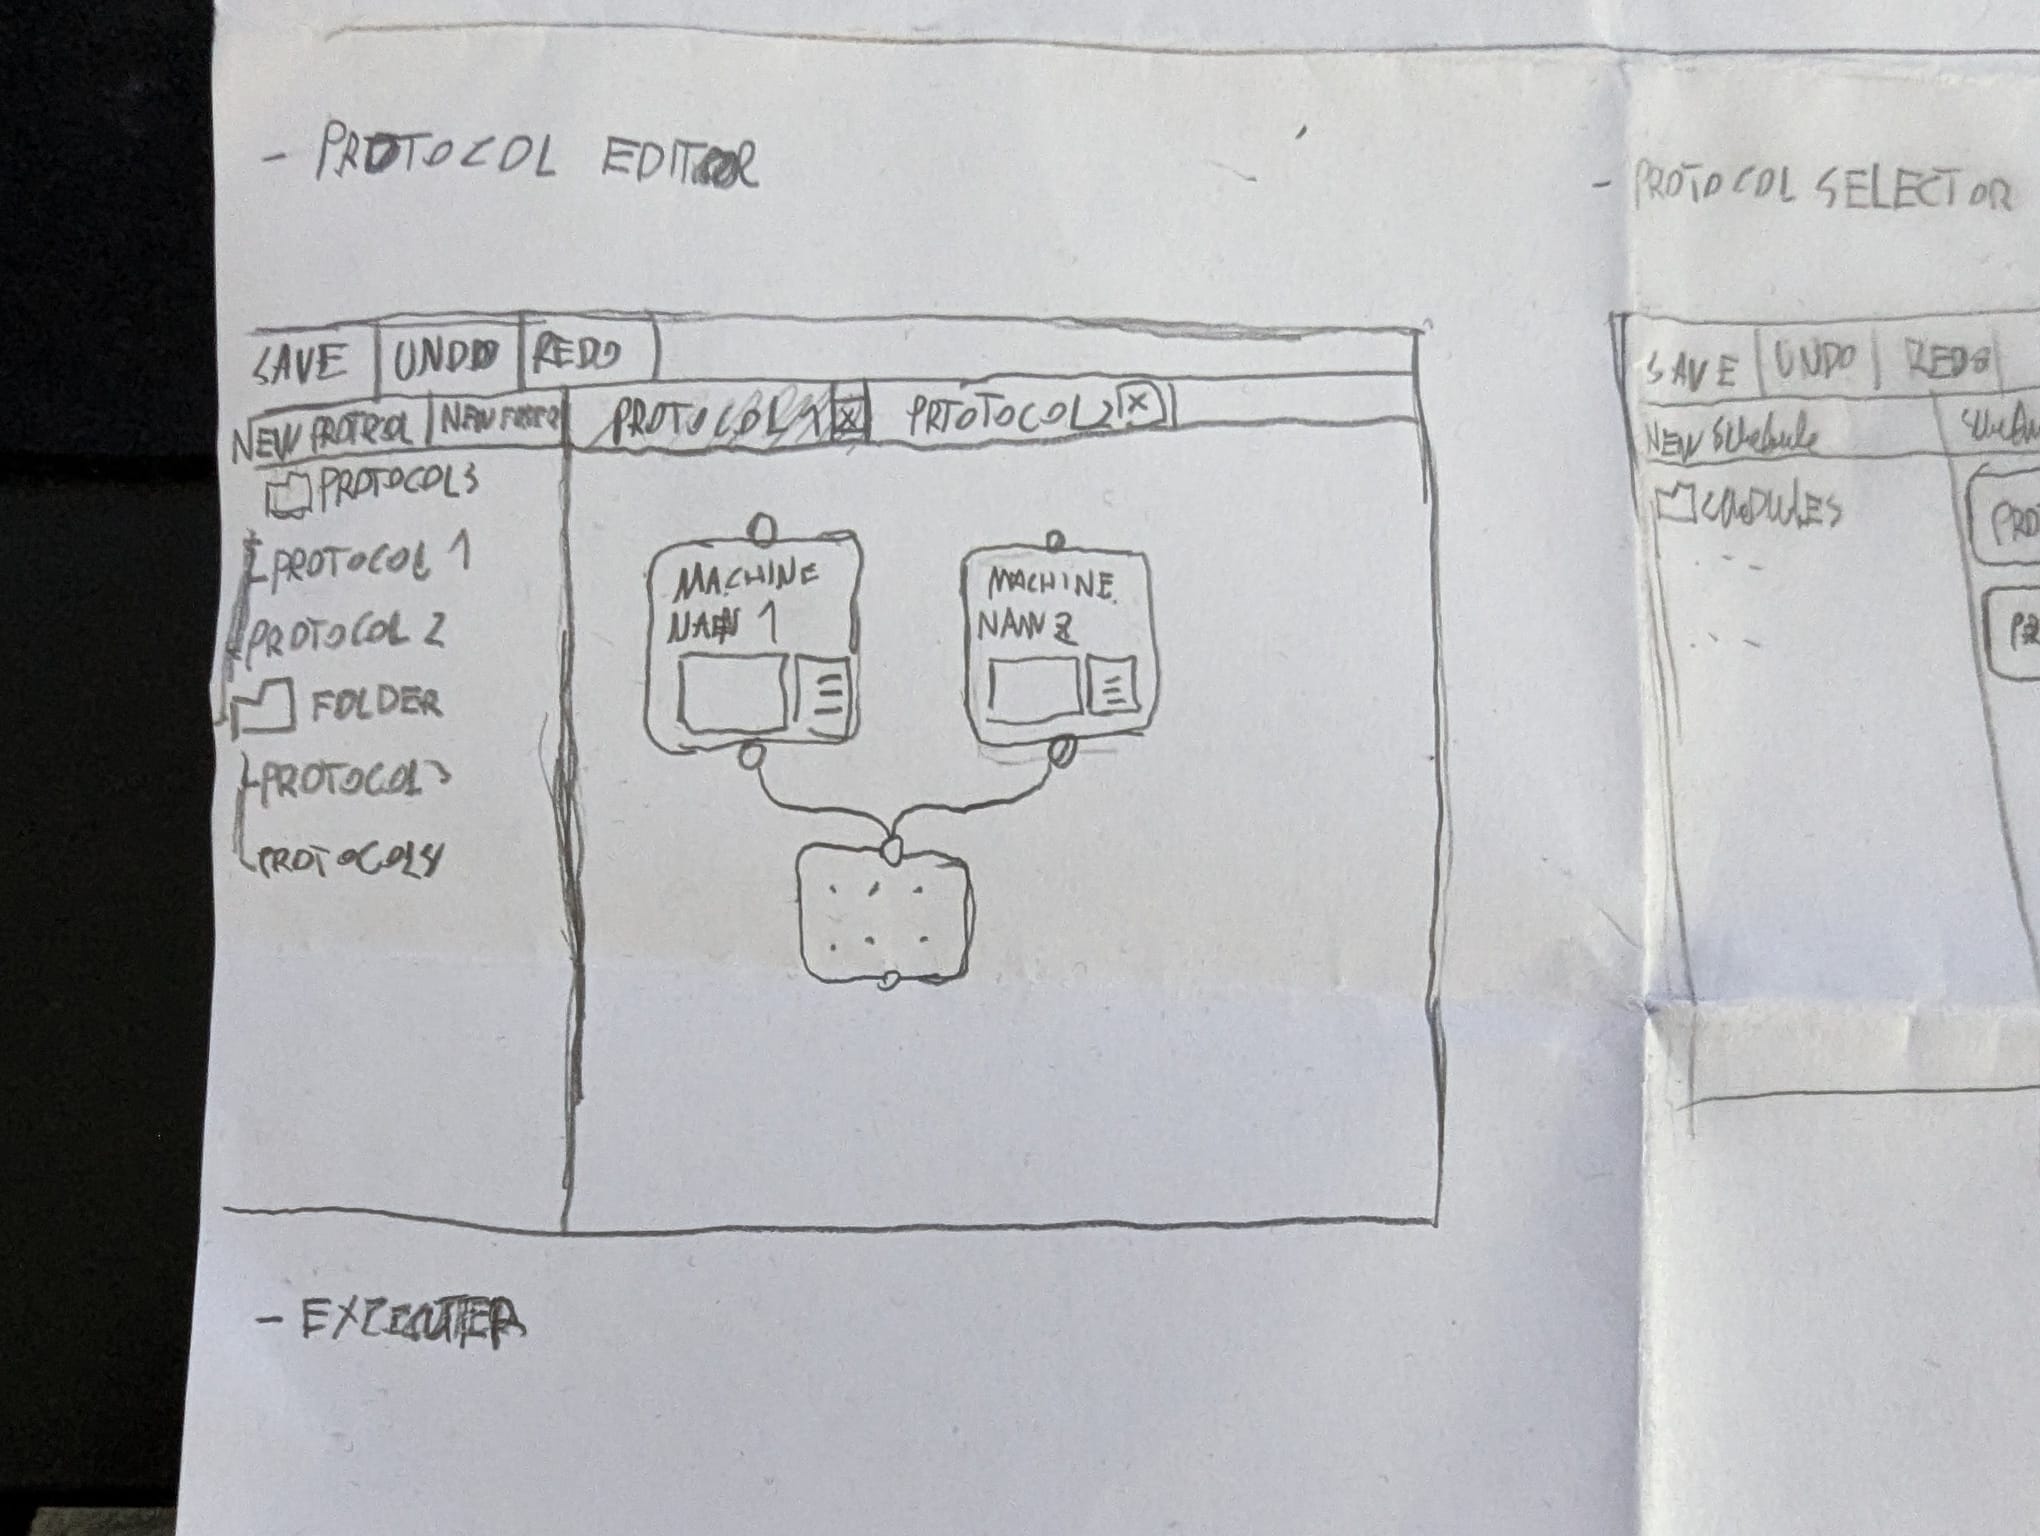 - PROTOCOL EDITOR
SAVE UNDO REDO
NEW PROTOCOL NEW
PROTOCOL 1 X PRTOTOCOL 2 X
PROTOCOLS
PROTOCOL 1
PROTOCOL 2
FOLDER
PROTOCOL 3
PROTOCOL 4
MACHINE
1
MACHINE
2
- EXECUTER
- PROTOCOL SELECTOR
SAVE UNDO REDO
NEW Schedule
PRO